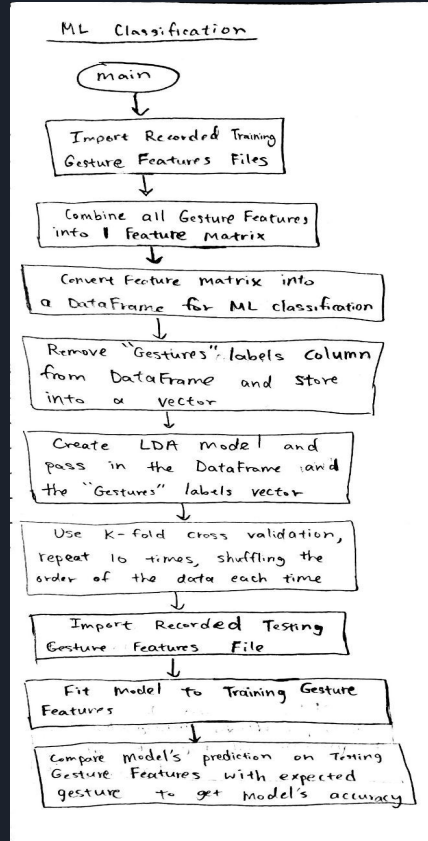 ML Classification
main
Import Recorded Training
Gesture Features Files
Combine all Gesture Features
into 1 Feature Matrix
Convert Feature matrix into
a DataFrame for ML classification
Remove "Gestures" labels column
from DataFrame and store
into a vector
Create LDA model and
pass in the DataFrame and
the "Gestures" labels vector
Use K-fold cross validation,
repeat 10 times, shuffling the
order of the data each time
Import Recorded Testing
Gesture Features File
Fit Model to Training Gesture
Features
Compare model's prediction on Testing
Gesture Features with expected
gesture to get model's accuracy